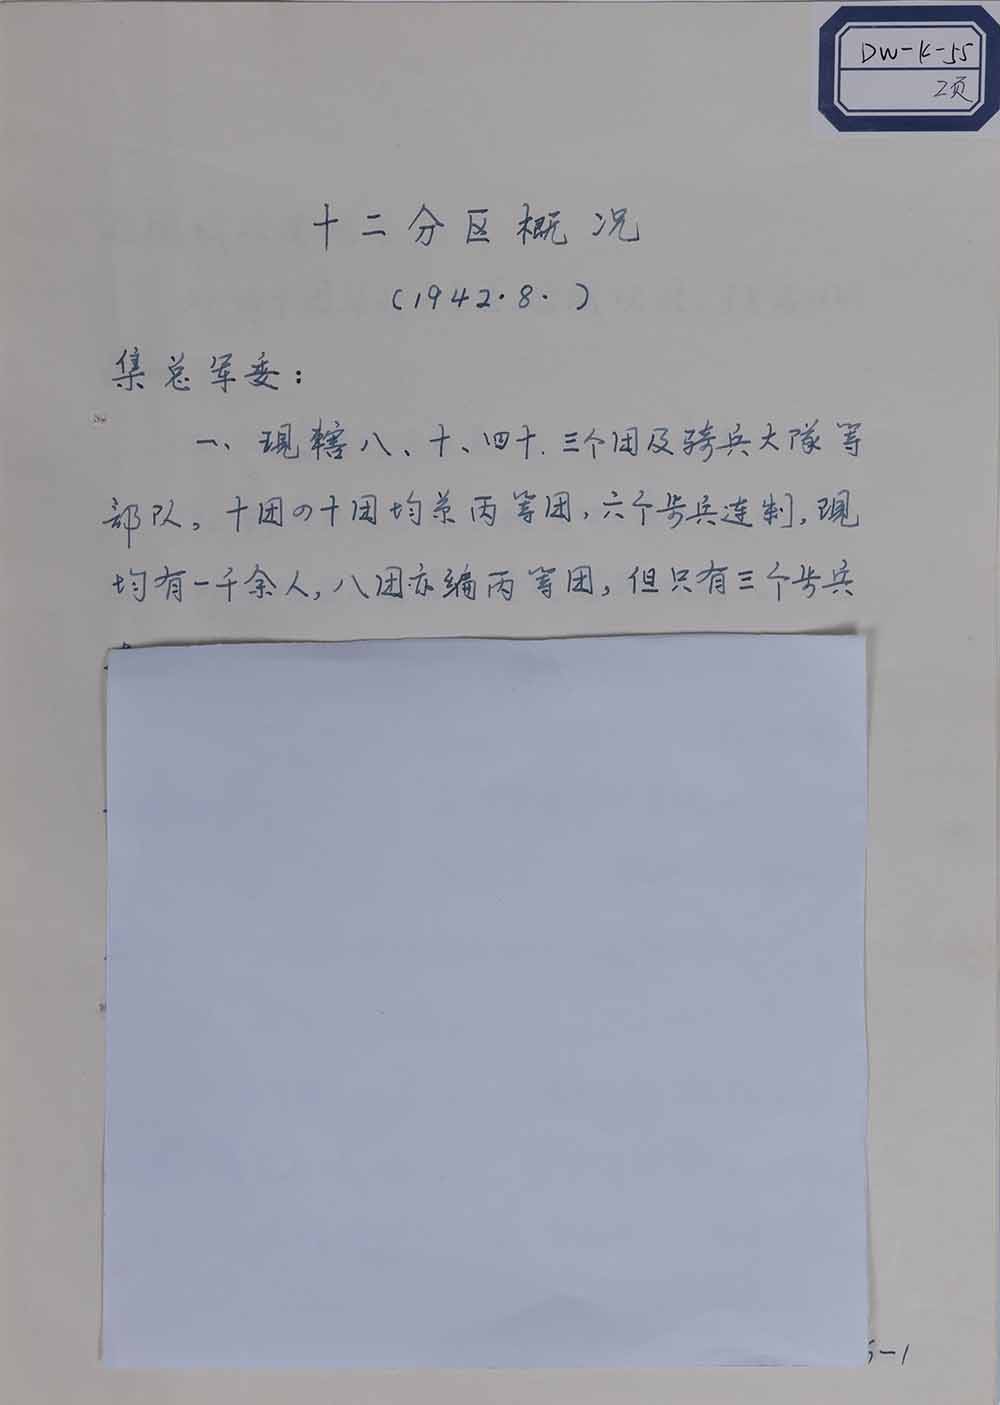 DW-K-55
2页
十二分区概况
(1942.8.)
集总军委:
一、现辖八、十、四十.三个团及骑兵大隊等
部队。十团の十团均系丙等团,六个步兵连制,现
均有一千余人,八团亦编丙等团,但只有三个步兵
5-1